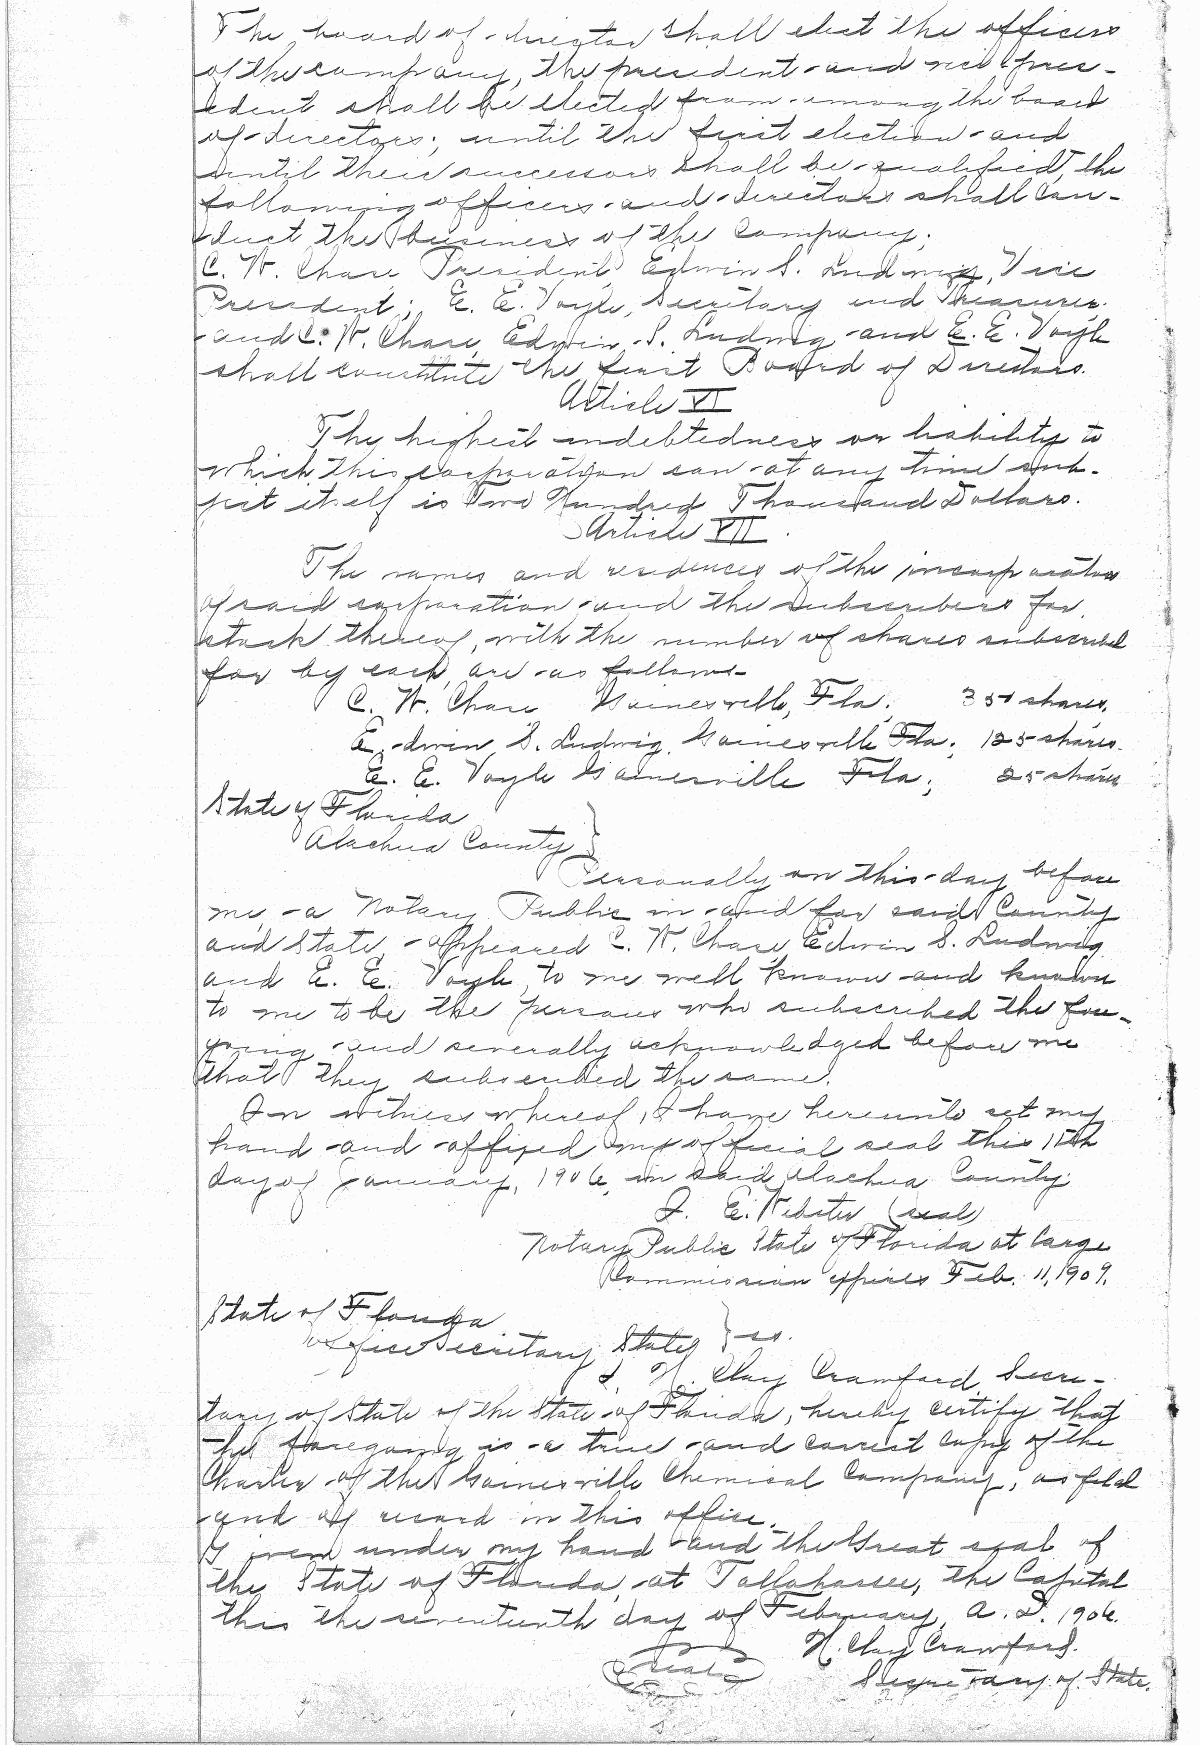 The board of director shall elect the officers
of the company, the president and vice pres-
ident shall be elected from among the board
of directors; until the first election and
until their successors shall be qualified, the
following officers and directors shall con-
duct the business of the Company;
C. W. Chase, President, Edwin S. Ludwig, Vice
President; E. E. Voyle, Secretary and Treasurer.
and C. W. Chase, Edwin S. Ludwig and E. E. Voyle
shall constitute the first Board of Directors.
Article VI
The highest indebtedness or liability to
which this corporation can at any time sub-
ject itself is Two Hundred Thousand Dollars.
Article VII.
The names and residences of the incorporators
of said corporation and the subscribers for
stock thereof, with the number of shares subscribed
for by each, are as follows-
C. W. Chase Gainesville, Fla; shares.
Edwin S. Ludwig, Gainesville Fla; 125 shares.
E. E. Voyle Gainesville Fla; 25 shares
State of Florida }
Alachua County }
Personally on this day before
me, a Notary Public in and for said County
and State, appeared C. W. Chase, Edwin S. Ludwig
and E. E. Voyle, to me well known and known
to me to be the persons who subscribed the fore-
going and severally acknowledged before me
that they subscribed the same.
In witness whereof, I have hereunto set my
hand and affixed my official seal this
day of January, 1906, in said Alachua County.
E. Webster (seal)
Notary Public State of Florida at Large
Commission expires Feb. 11, 1909.
State of Florida }
Office Secretary State } ss.
I, H. Clay Crawford, Secre-
tary of State of the State of Florida, hereby certify that
the foregoing is a true and correct copy of the
Charter of the Gainesville Chemical Company, as filed
and of record in this office.
Given under my hand and the Great seal of
the State of Florida, at Tallahassee, the Capital
this the seventeenth day of February, A. D. 1906.
H. Clay Crawford.
Seal
Secretary of State.